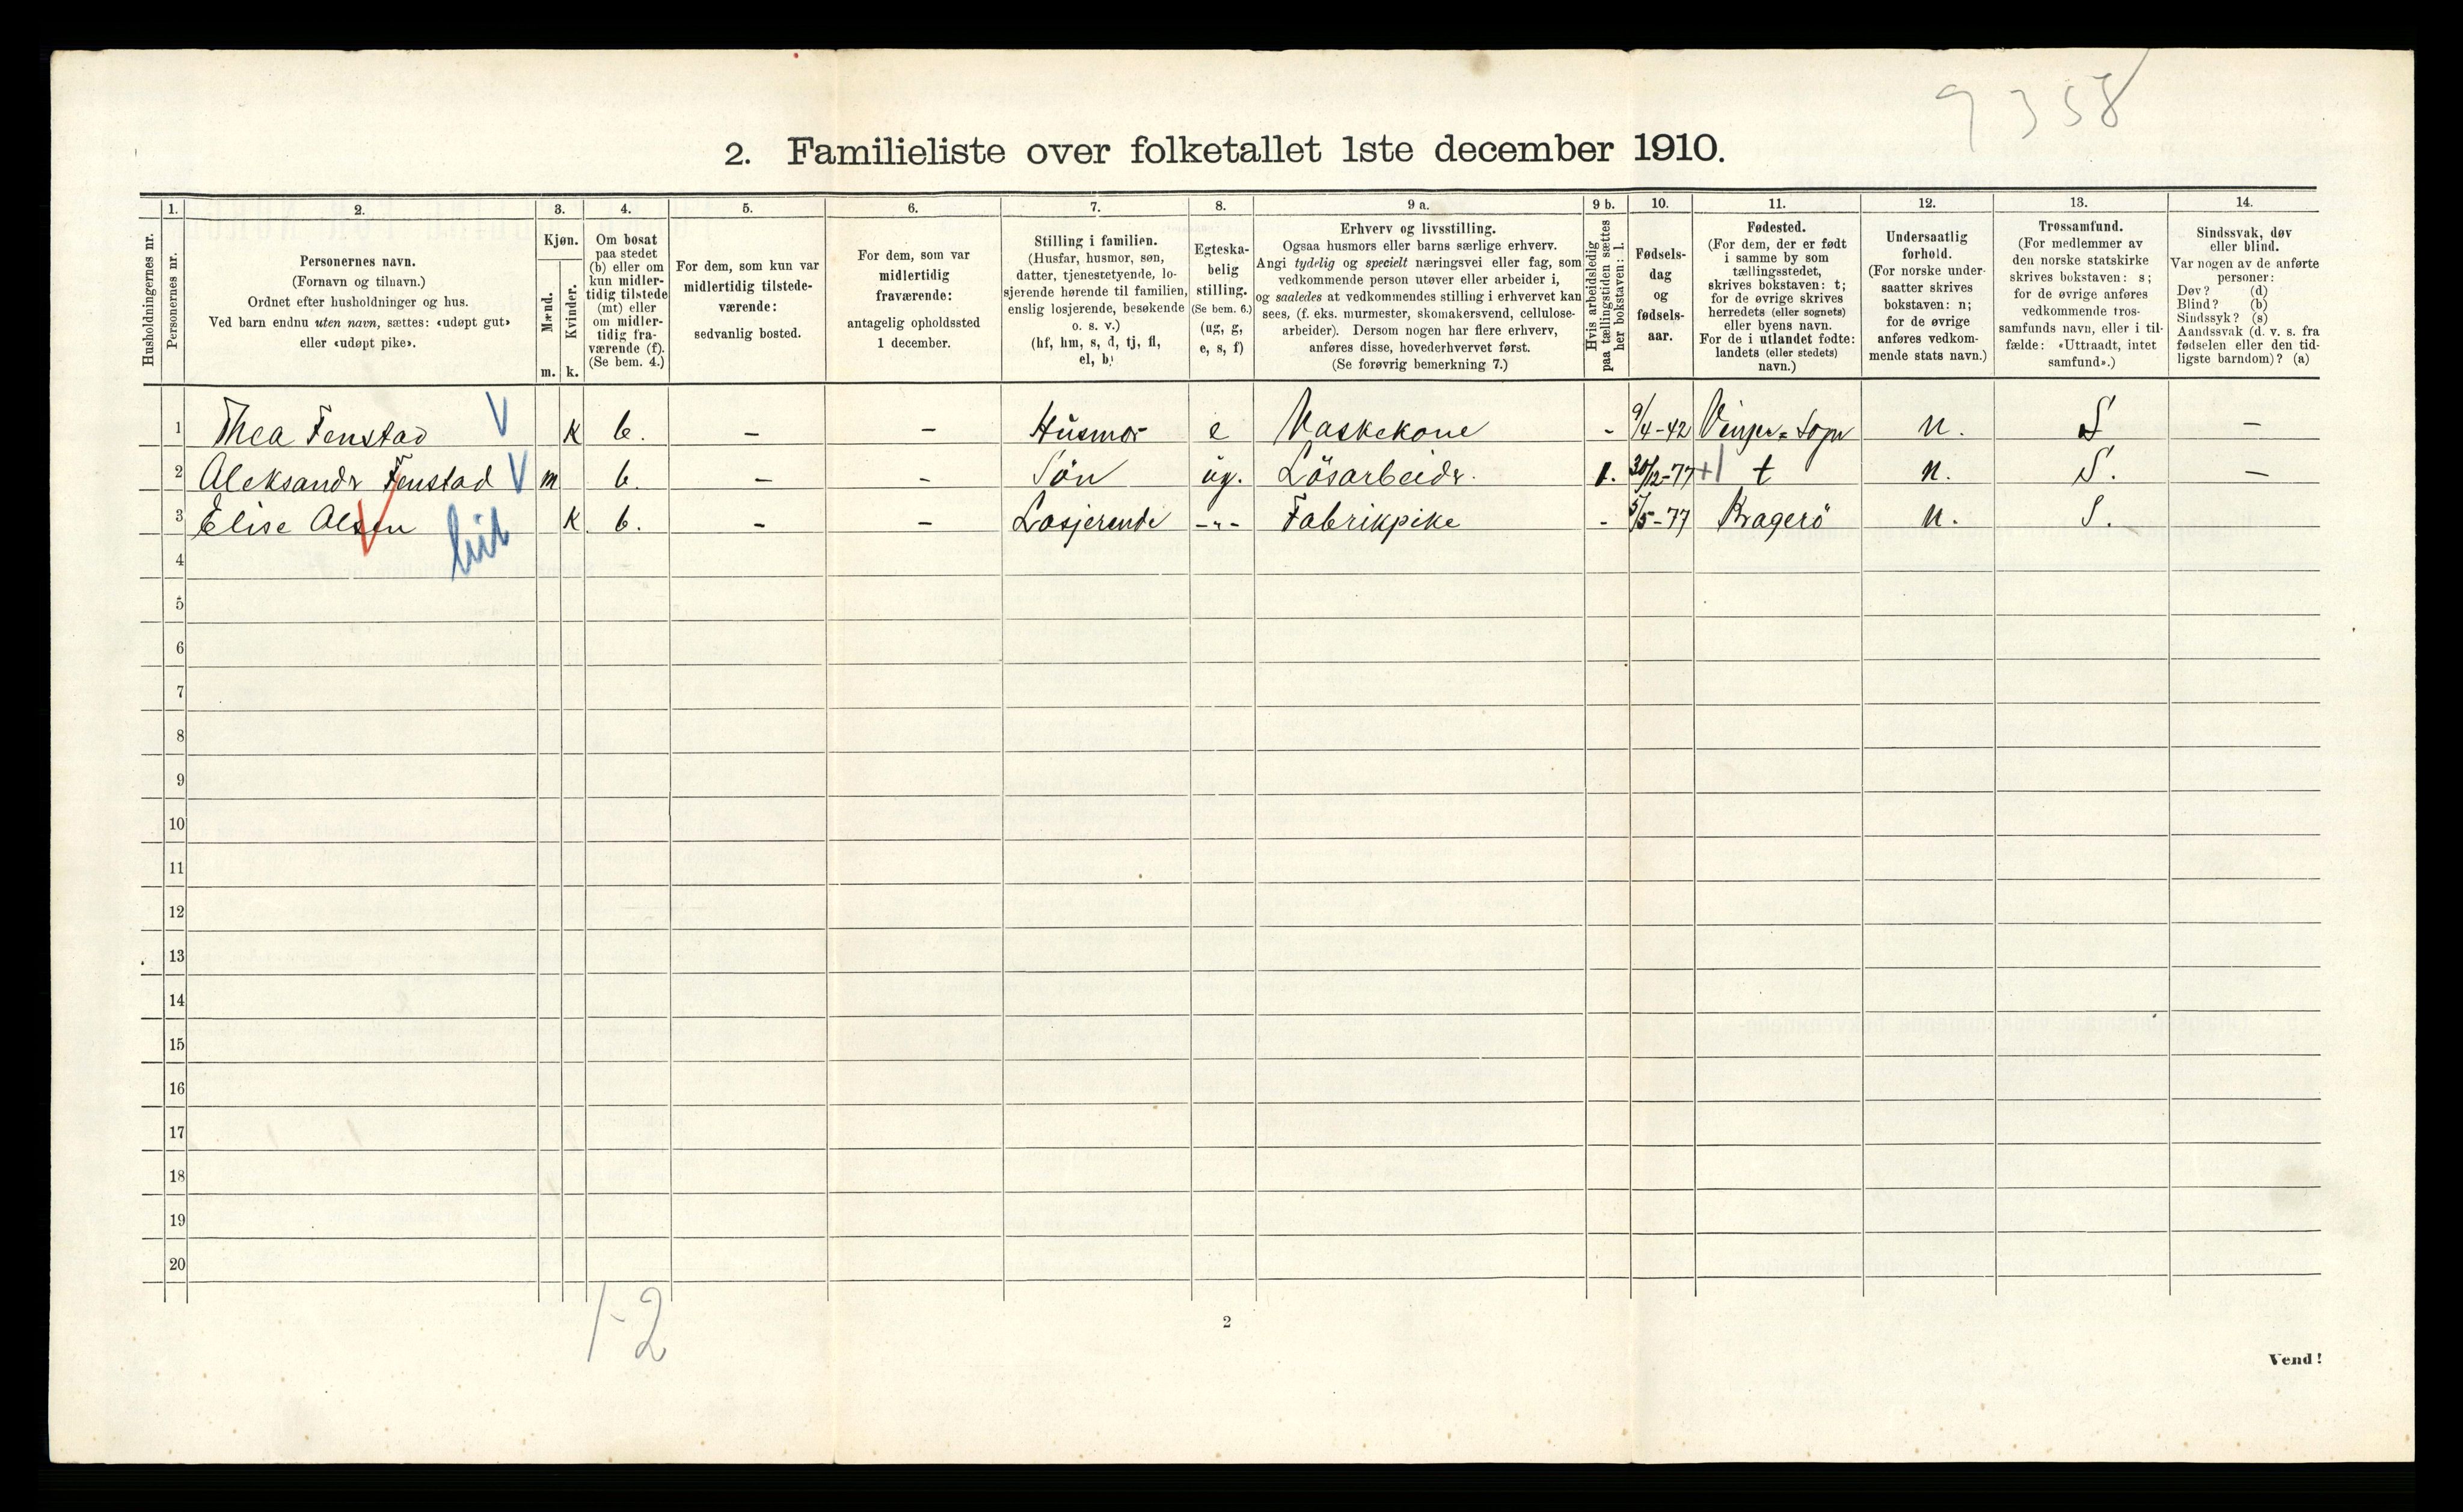 9358
2. Familieliste over folketallet 1ste december 1910.
Husholdningernes nr.
1.
Personernes nr.
2.
Personernes navn.
(Fornavn og tilnavn.)
Ordnet efter husholdninger og hus.
Ved barn endnu uten navn, sættes: «udøpt gut»
eller «udøpt pike».
3.
Kjøn.
Mænd.
m.
Kvinder.
k.
4.
Om bosat
paa stedet
(b) eller om
kun midler-
tidig tilstede
(mt) eller
om midler-
tidig fra-
værende (f).
(Se bem. 4.)
5.
For dem, som kun var
midlertidig tilstede-
værende:
sedvanlig bosted.
6.
For dem, som var
midlertidig
fraværende:
antagelig opholdssted
1 december.
7.
Stilling i familien.
(Husfar, husmor, søn,
datter, tjenestetyende, lo-
sjerende hørende til familien,
enslig losjerende, besøkende
o. s. v.)
(hf, hm, s, d, tj, fl,
el, b)
8.
Egteska-
belig
stilling.
(Se bem. 6.)
(ug, g,
e, s, f)
9 a.
Erhverv og livsstilling.
Ogsaa husmors eller barns særlige erhverv.
Angi tydelig og specielt næringsvei eller fag, som
vedkommende person utøver eller arbeider i,
og saaledes at vedkommendes stilling i erhvervet kan
sees, (f. eks. murmester, skomakersvend, cellulose-
arbeider). Dersom nogen har flere erhverv,
anføres disse, hovederhvervet først.
(Se forøvrig bemerkning 7.)
9 b.
Hvis arbeidsledig
paa tællingstiden sættes
her bokstaven: l.
10.
Fødsels-
dag
og
fødsels-
aar.
11.
Fødested.
(For dem, der er født
i samme by som
tællingsstedet,
skrives bokstaven: t;
for de øvrige skrives
herredets (eller sognets)
eller byens navn.
For de i utlandet fødte:
landets (eller stedets)
navn.)
12.
Undersaatlig
forhold.
(For norske under-
saatter skrives
bokstaven: n;
for de øvrige
anføres vedkom-
mende stats navn.)
13.
Trossamfund.
(For medlemmer av
den norske statskirke
skrives bokstaven: s;
for de øvrige anføres
vedkommende tros-
samfunds navn, eller i til-
fælde: «Uttraadt, intet
samfund».)
14.
Sindssvak, døv
eller blind.
Var nogen av de anførte
personer:
Døv? (d)
Blind? (b)
Sindssyk? (s)
Aandssvak (d. v. s. fra
fødselen eller den tid-
ligste barndom)? (a)
1 Thea Fenstad V K b. - - Husmor e Vaskekone - 9/4-42 Vinger=Sogn n. S -
2 Aleksandr Fenstad V m b. - - Søn ug. Løsarbeidr. l. 30/12-77 +1 t n. S. -
3 Elise Alsen V K. b. - - Losjerende -"- Fabrikpike - 5/5-77 Kragerö n. S.
4
5
6
7
8
9
10
11
12
13
14
15
16
17
18
19
20
1-2
2
Vend!